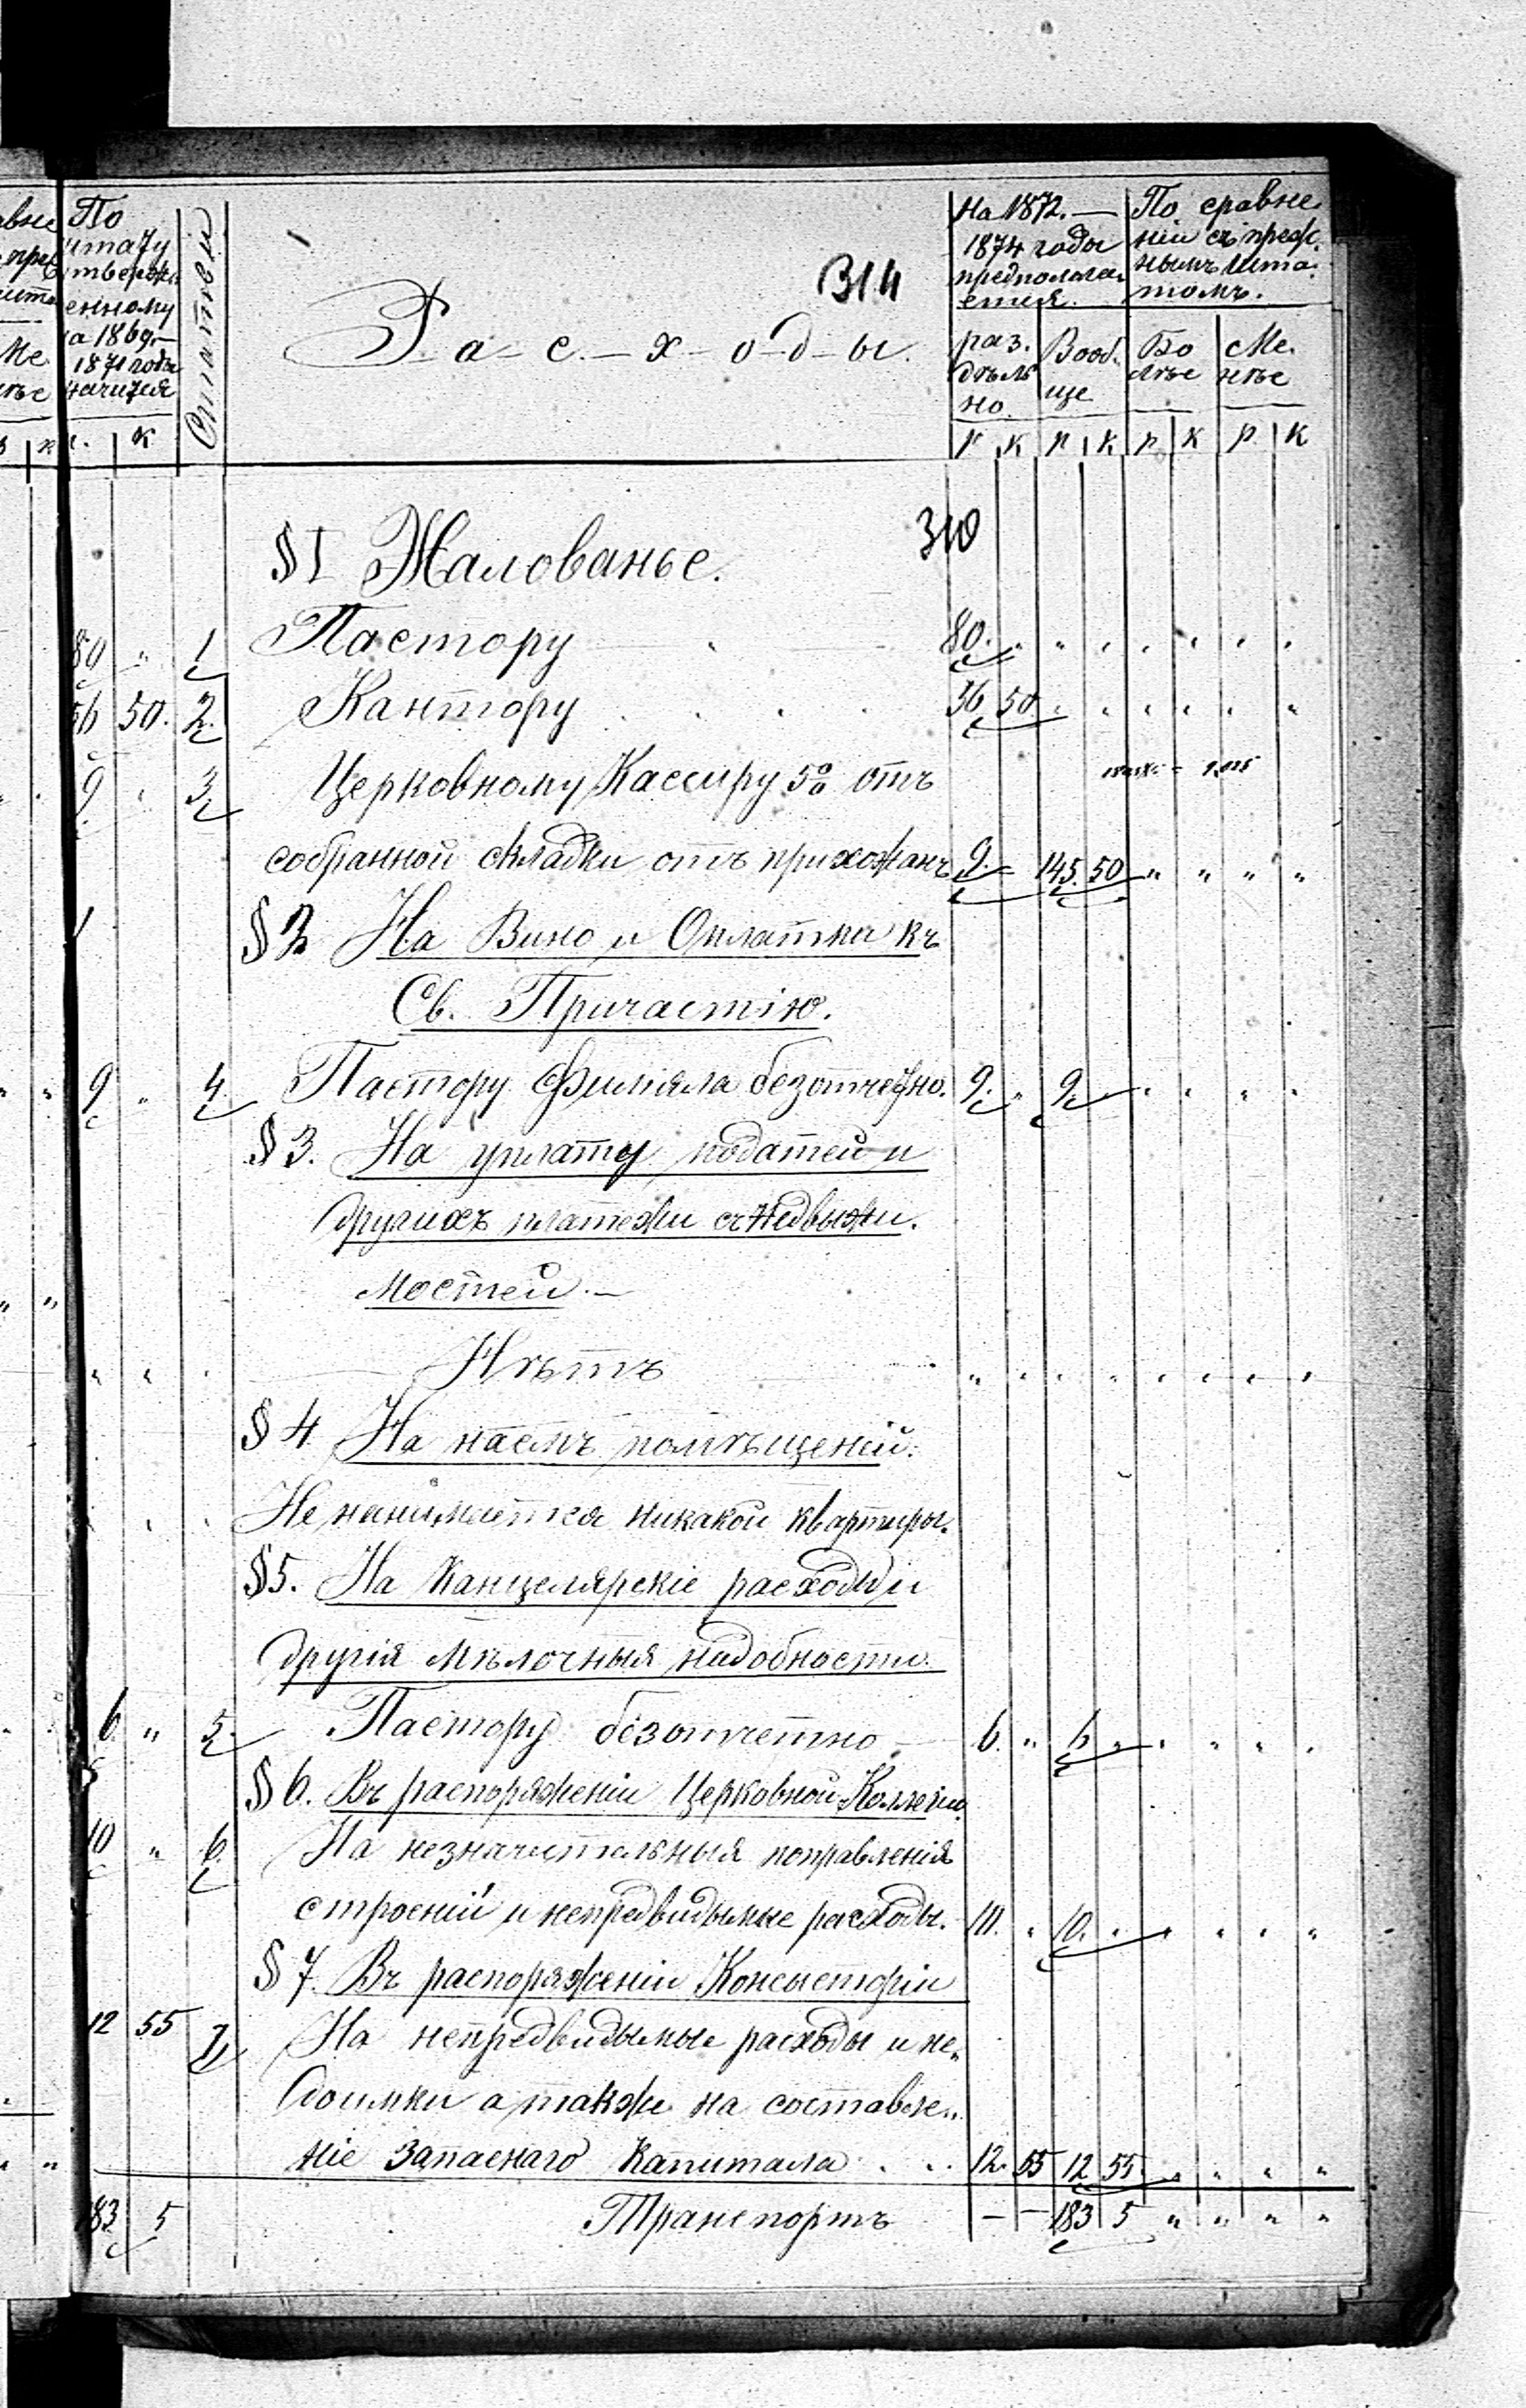 По
штату
утвержд
енному
на 1869.—
1871 годы
значится
к
Статьи
314
Р а – с. – х – о – д – ы.
На 1872. —
1874 годы
предполага
ется.
По сравне
нію съ преж.
нымъ шта
томъ.
раз.
дѣль
но.
Вооб.
ще
Бо
лѣе
Ме.
нѣе
р к р к р к р к
310
§ I Жалованье.
80 " 1 Пастору 80. " " " " " " "
56 50. 2. Кантору 56 50. " " " " " "
9 " 3 Церковному Кассиру 5% отъ
собранной складки отъ прихожанъ 9. – 145. 50 " " " "
§ 2 На Вино и Оплатки къ
Св. Причастію.
9 " 4. Пастору Филіяла безотчетно. 9. " 9. " " " " "
§ 3. На уплату податей и
другихъ платежи съ недвыжи.
мостей. —
" " Нѣтъ " " " " " " " "
§ 4. На наемъ помѣщеній.
Не нанимается никакой квартиры.
§ 5. На Канцелярскіе расходы и
другія мѣлочныя надобности.
6. " 5. Пастору безотчетно 6. " 6 " " " " "
§ 6. Въ распоряженіи Церковной Коллегіи.
10 " 6. На незначительныя поправленія
строеній и непредвидымые расходы. 10. " 10. " " " " "
§ 7. Въ распоряженіи Консысторіи
12 55 7 На непредвидымые расходы и не„
доимки а также на составле„
ніе Запаснаго Капитала . . . 12. 55 12 55. " " " "
183 5 Транспортъ – – 183 5 " " " "